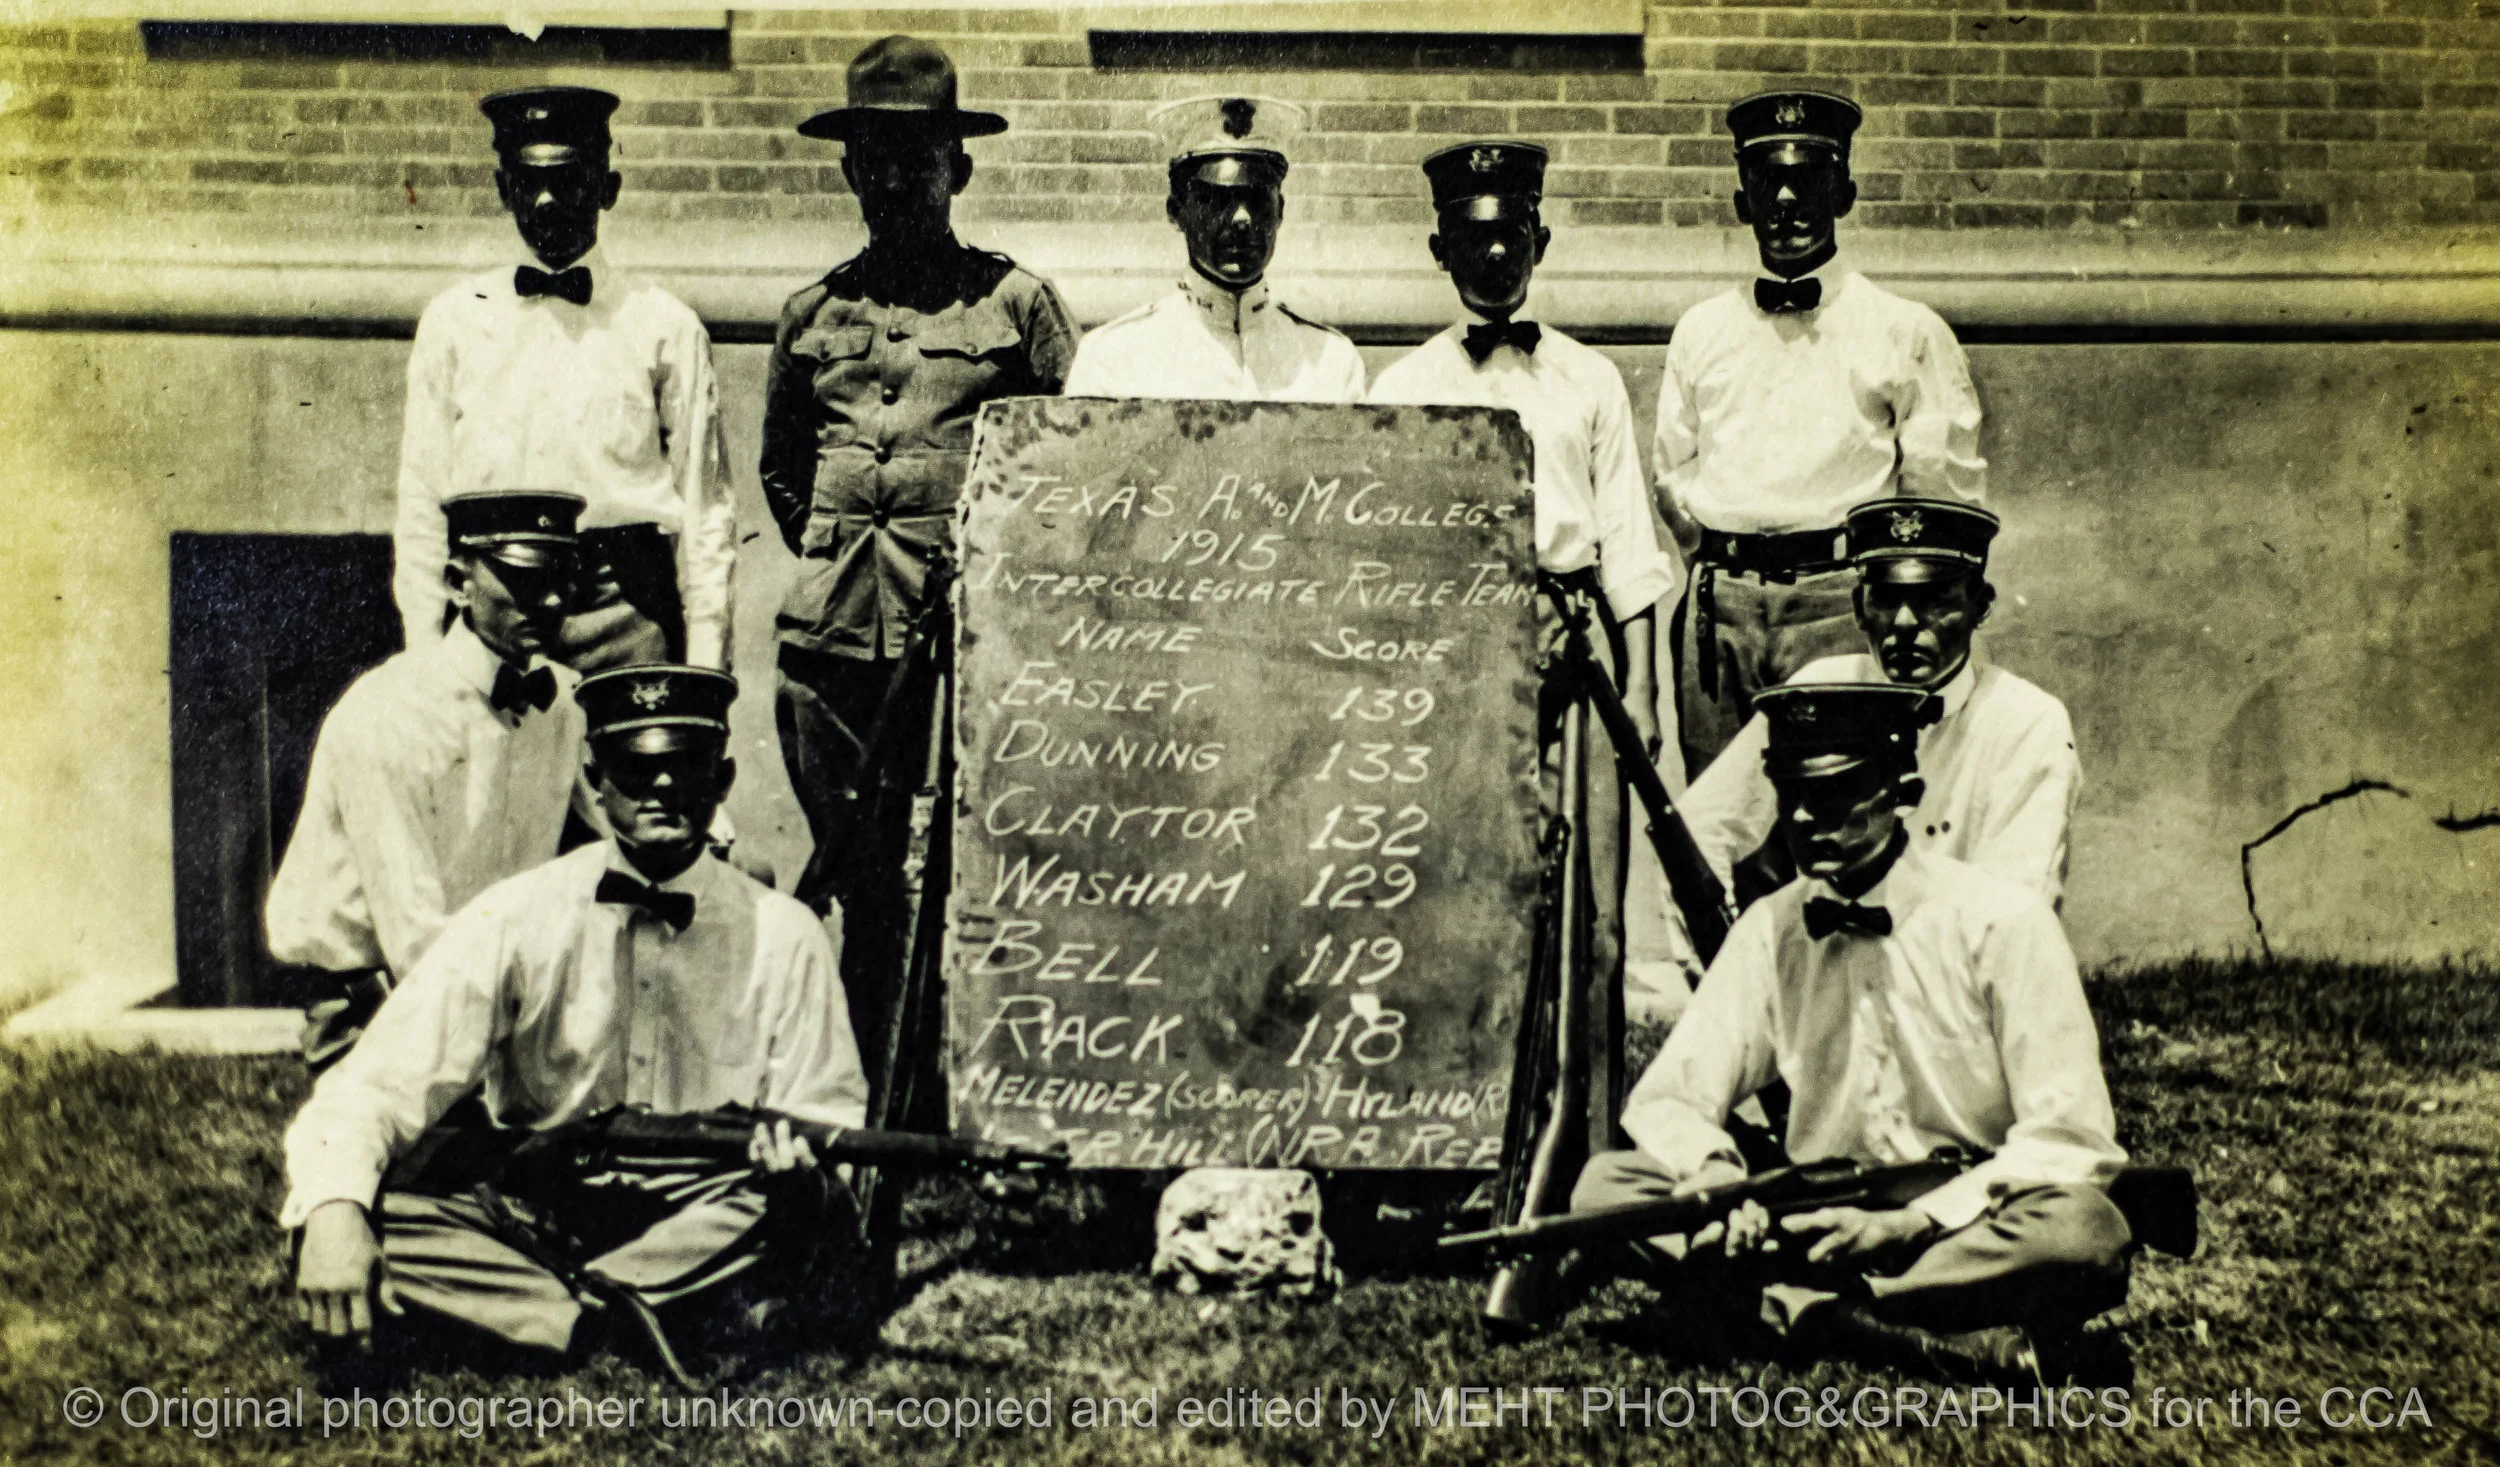 TEXAS A. AND M. COLLEGE
1915
INTERCOLLEGIATE RIFLE TEAM
NAME SCORE
EASLEY 139
DUNNING 133
CLAYTOR 132
WASHAM 129
BELL 119
RACK 118
MELENDEZ (SCORER) HYLAND (R
JR. HILL (NRA. REP
© Original photographer unknown-copied and edited by MEHT PHOTOG&GRAPHICS for the CCA